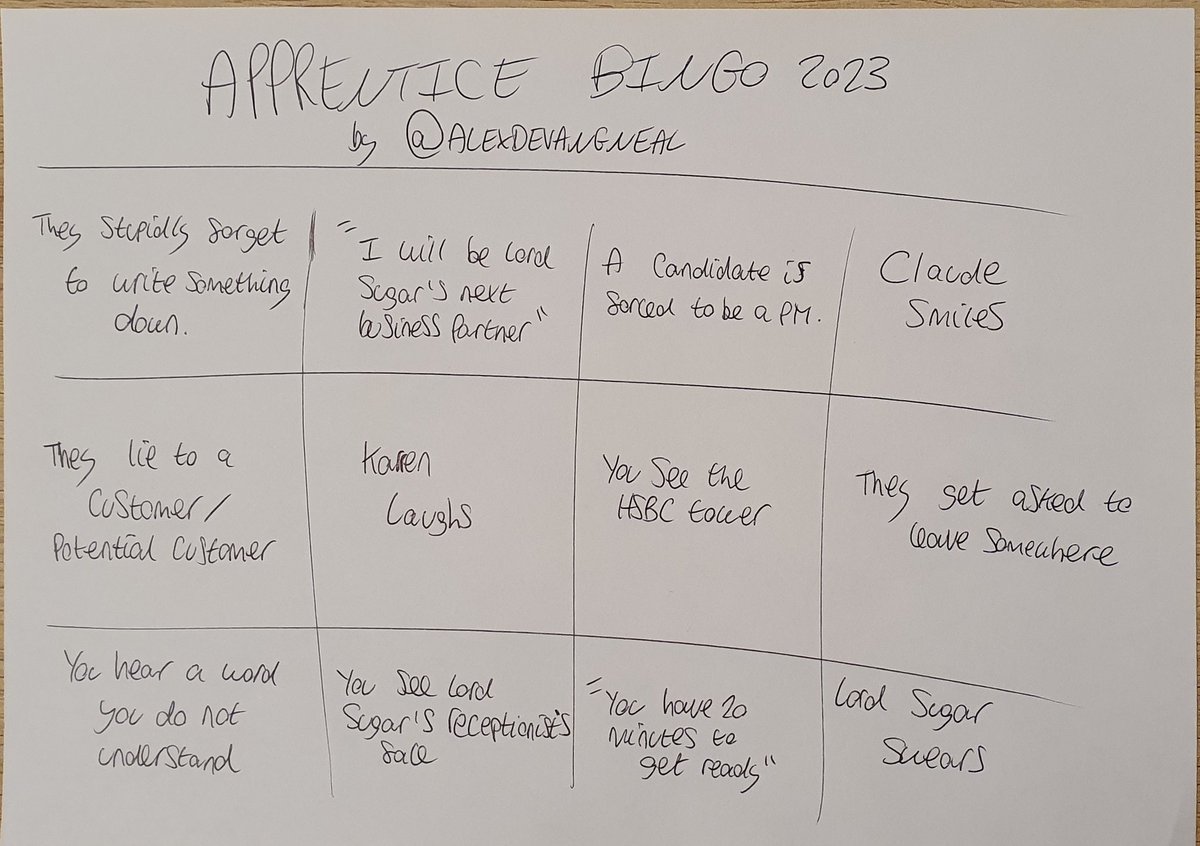 APPRENTICE BINGO 2023
by @ALEXDEVANGNEAL
They stupidly forget
to write something
down.
"I will be Lord
Sugar's next
business partner"
A candidate is
forced to be a PM.
Claude
Smiles
They lie to a
Customer/
Potential Customer
Karen
Laughs
You see the
HSBC tower
They get asked to
leave somewhere
You hear a word
you do not
understand
You see Lord
Sugar's receptionist's
face
"You have 20
minutes to
get ready"
Lord Sugar
Swears